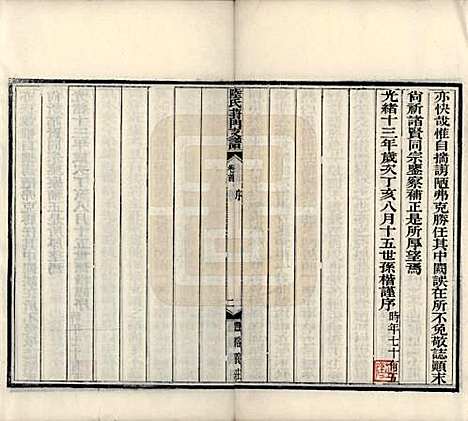 亦快哉惟自揣謭陋弗克勝任其中闕誤在所不免敬誌顚末
尙祈諸賢同宗鑒察補正是所厚望焉
光緒十三年歲次丁亥八月十五世孫楷謹序時年七十有五
陸氏葑門支譜
卷首
序
二
豐裕義莊